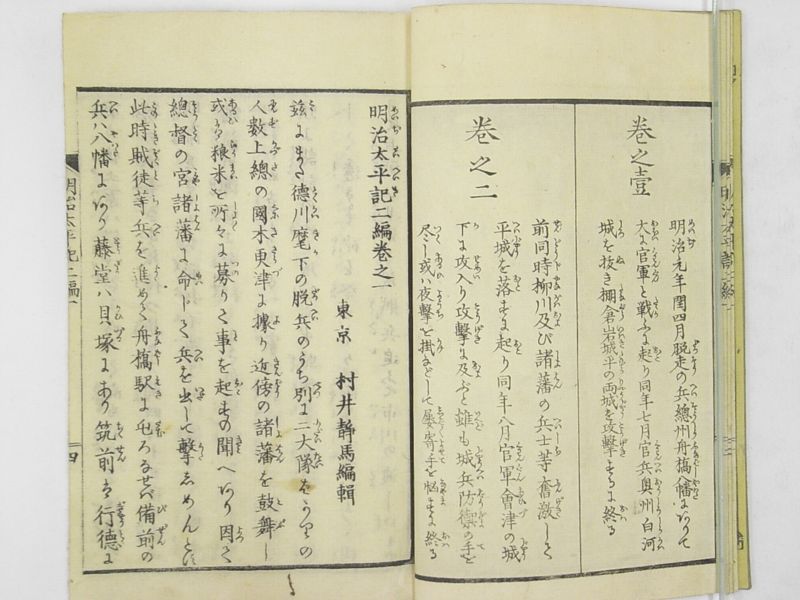 巻之壹
明治元年閏四月脱走の兵總州舟橋八幡によりて
大に官軍と戦ふに起り同年七月官兵奥州白河
城を抜き棚倉岩城平の両城を攻撃するに終る
巻之二
前同時柳川及び諸藩の兵士等奮激して
平城を落すに起り同年八月官軍會津の城
下に攻入り攻撃に及ぶと雖も城兵防禦の手を
尽し或ハ夜撃を掛などして屡寄手を悩すに終る
明治太平記二編巻之一
東京 村井静馬編輯
茲にまた徳川麾下の脱兵のうち別に二大隊ばかりの
人数上總の國木更津に據り近傍の諸藩を鼓舞し
或ハ粮米を所々に募りて事を起すの聞へあり因て
總督の宮諸藩に命じて兵を出して撃しめんとに
此時賊徒等兵を進めて舟橋駅に屯ろるせバ備前の
兵ハ八幡にあり藤堂ハ貝塚にあり筑前は行徳に
明治太平記二編一
四